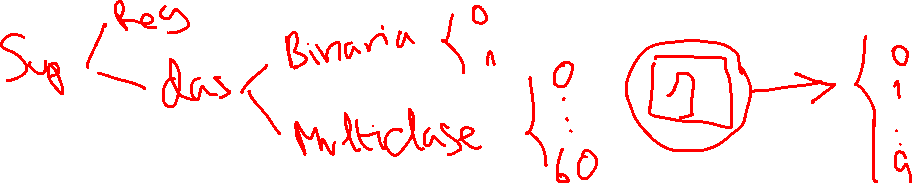 Sup
Reg
Clas
Binaria
0
1
Multiclase
0
60
1
0
1
9